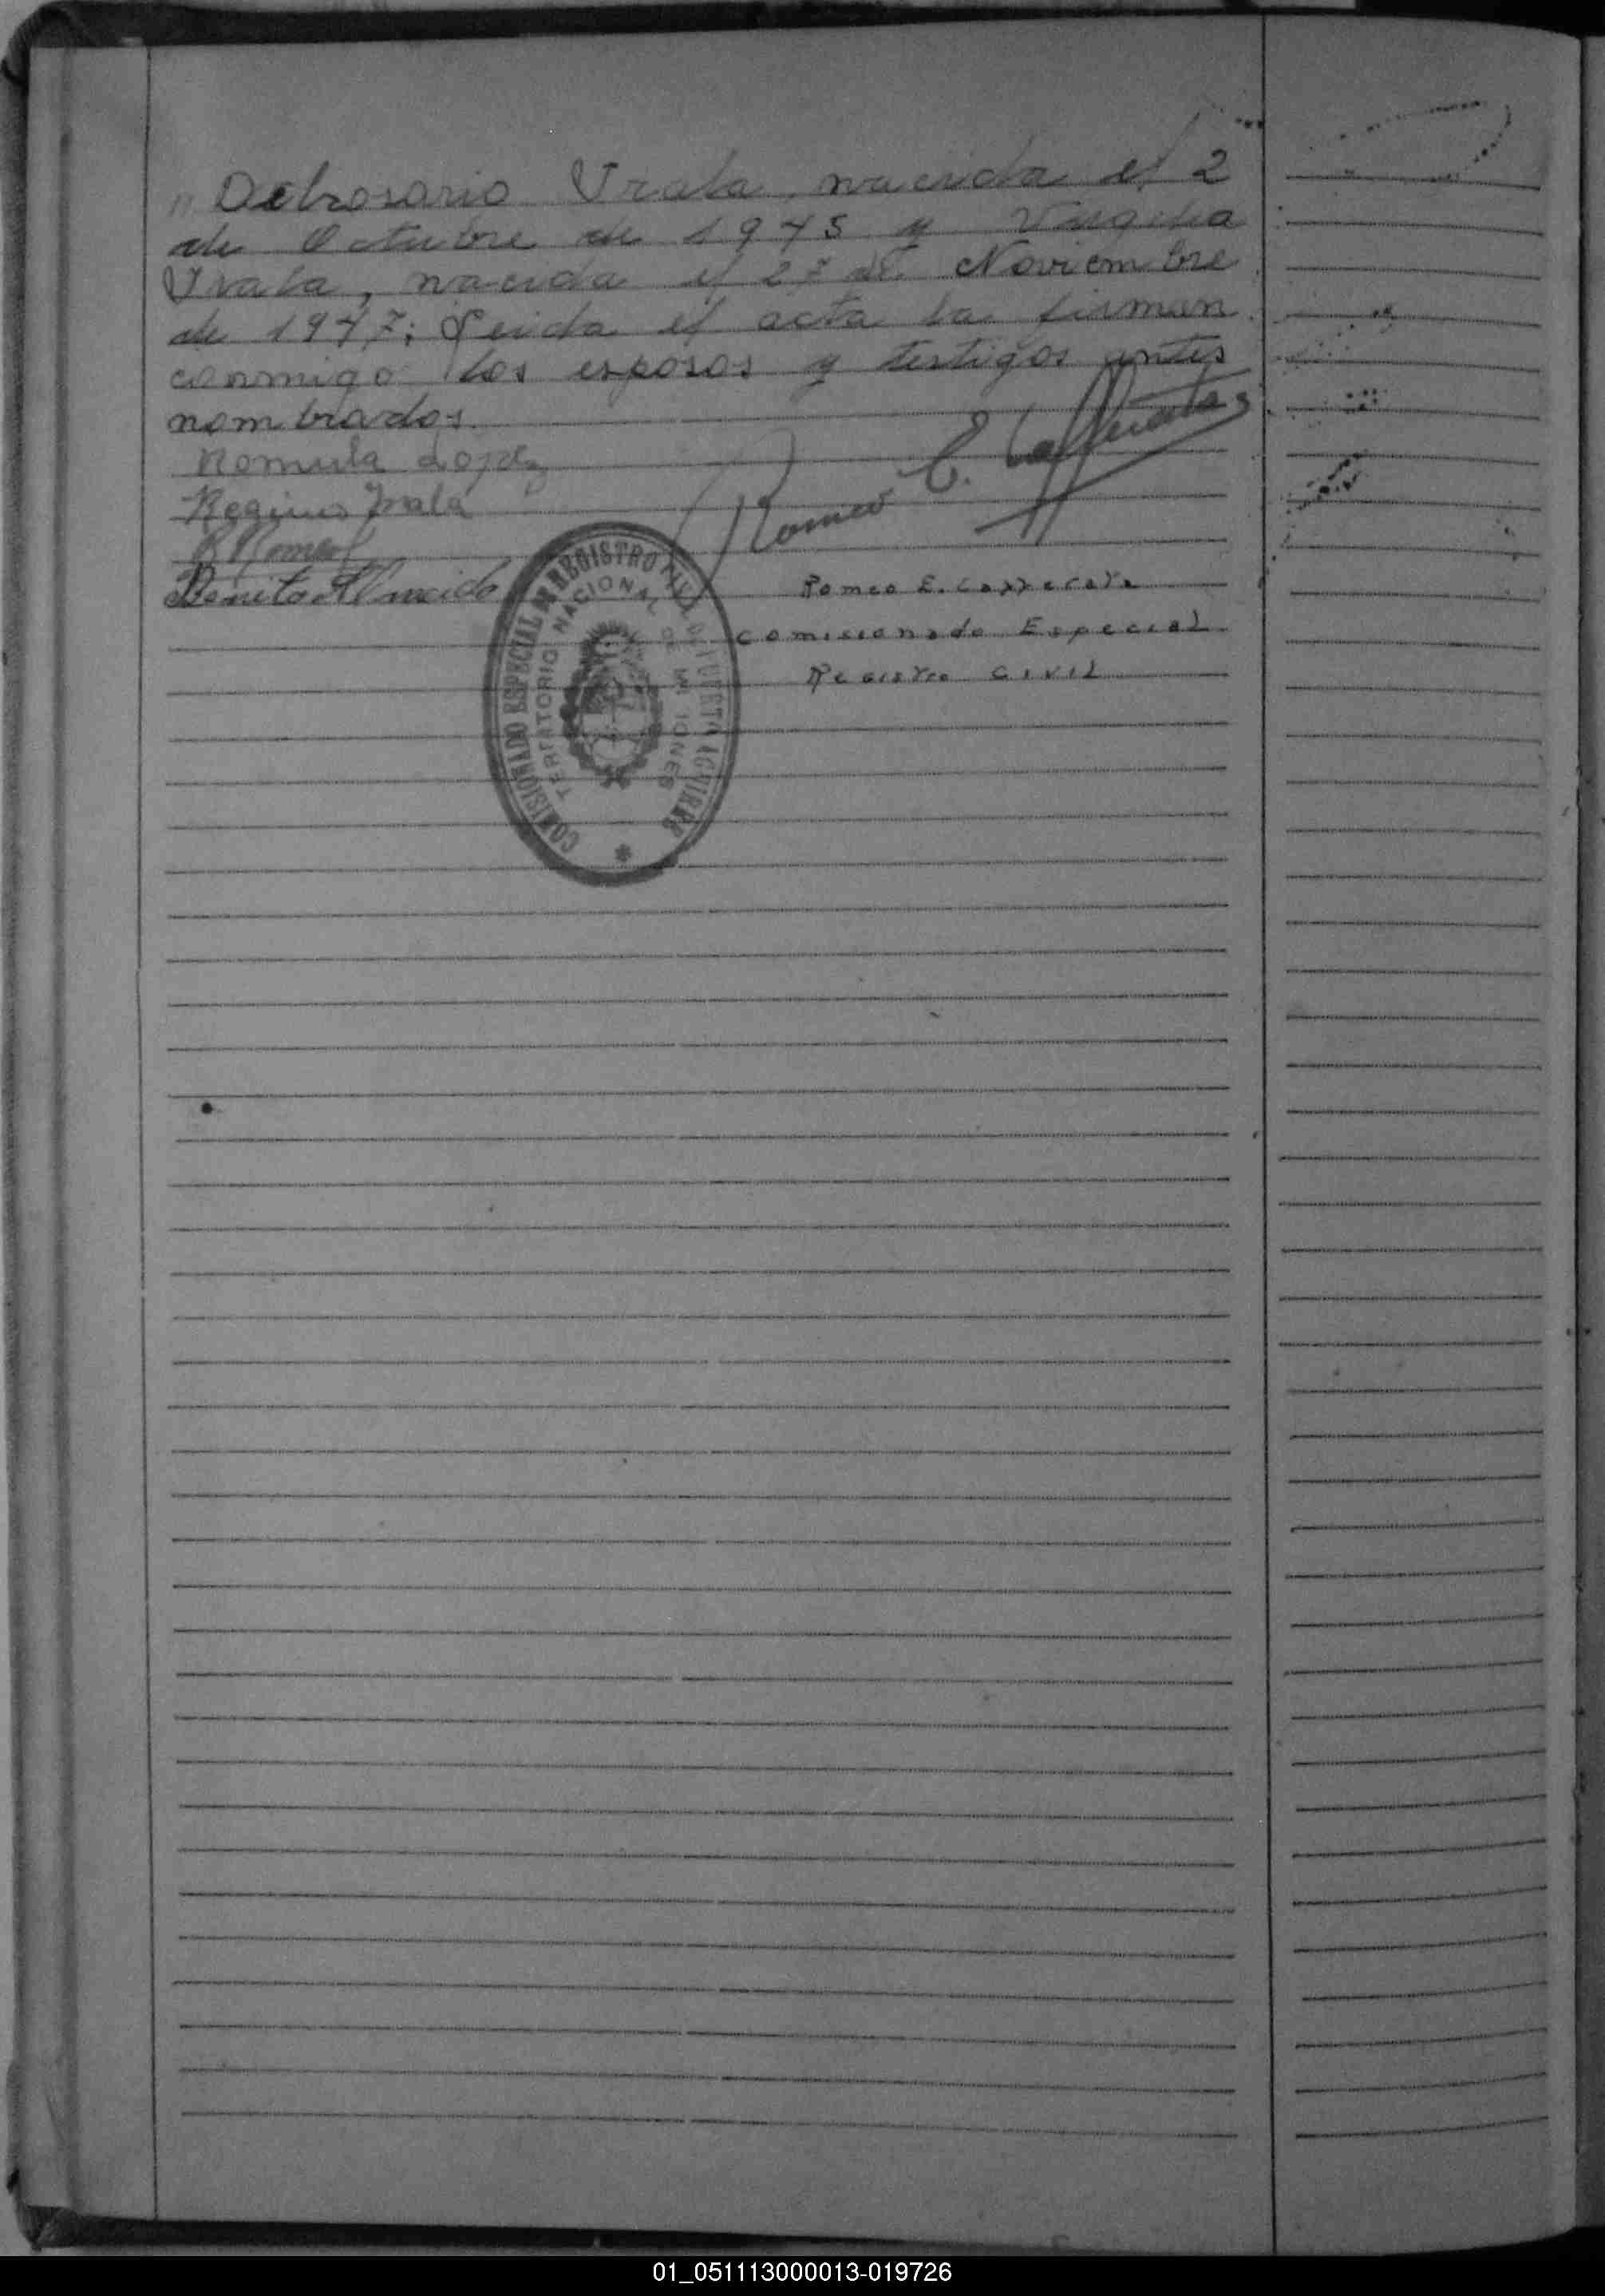 " Delrosario Irala, nacida el 2
de Octubre de 1945 y Virgilia
Irala, nacida el 27 de Noviembre
de 1947; Leida el acta la firman
conmigo los esposos y testigos antes
nombrados.
Romula Lopez
Regino Irala
B Romero
Benito Almeida
Romeo E. Cafferata
Romeo E. Cafferata
Comisionado Especial
Registro Civil
COMISIONADO ESPECIAL REGISTRO CIVIL PUERTO AGUIRRE
TERRITORIO NACIONAL DE MISIONES
01_051113000013-019726